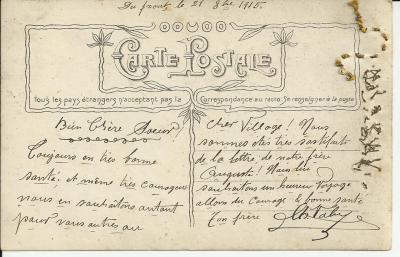 Du front le 21 8bre 1915.
CARTE POSTALE
Tous les pays étrangers n'acceptant pas la Correspondance au recto. Se renseigner à la poste
Bien Chère Soeur!
Toujours en très bonne
santé. et même très courageux
nous en souhaitons autant
pour vous autres au
cher Village! Nous
sommes très satisfaits
de la lettre de notre frère
Auguste! Nous lui
souhaitons un heureux voyage
allons du Courage & bonne santé
Ton frère